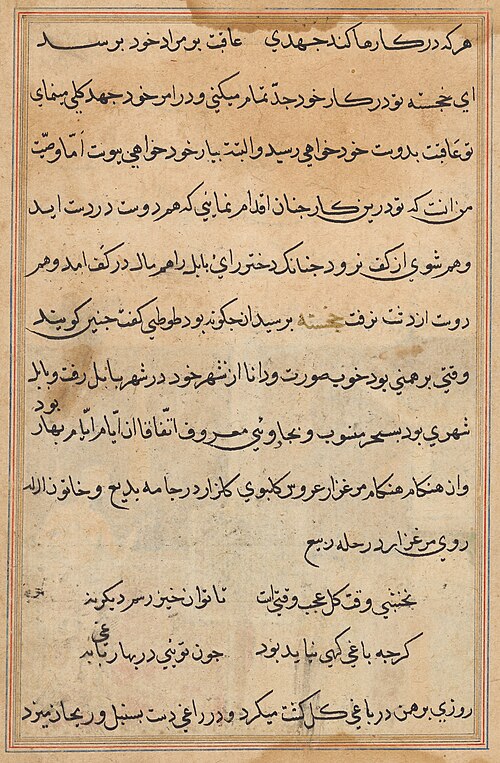 هر که در کارها کند جهدی عاقبت بر مراد خود برسد
ای خجسته تو در کار خود جدّ تمام میکنی و در امر خود جهد کلی مینمای
تو عاقبت بدوست خود خواهی رسید و البته بیار خود خواهی پیوست امّا وصیّت
من انست که تو درین کار چنان اقدام نمائی که هم دوست در دست اید
و هم شوی از کف نرود چنانک دختر رای بابل را هم مال در کف امد و هم
دوست از دست نرفت خجسته برسید ان چکونه بود طوطی کفت چنین کویند
وقتی برهمنی بود خوب صورت و دانا از شهر خود در شهر بابل رفت و بابل
شهری بود بسحر منسوب و بجادوئی معروف اتّفاقا ان ایّام ایّام بهار بود
وان هنکام هنکام مرغزار عروس کلبوی کلزار در جامه بدیع و خاتون لاله
روی مرغزار در حله ربیع
نخشبی وقت کل عجب وقتی است تا توان خیز رسم دیکر نه
کرچه باغی کهی نباید بود چون توئی در بهار باغی به
روزی برهمن در باغی کل کشت میکرد و در راغی دست بسنبل و ریحان میزد